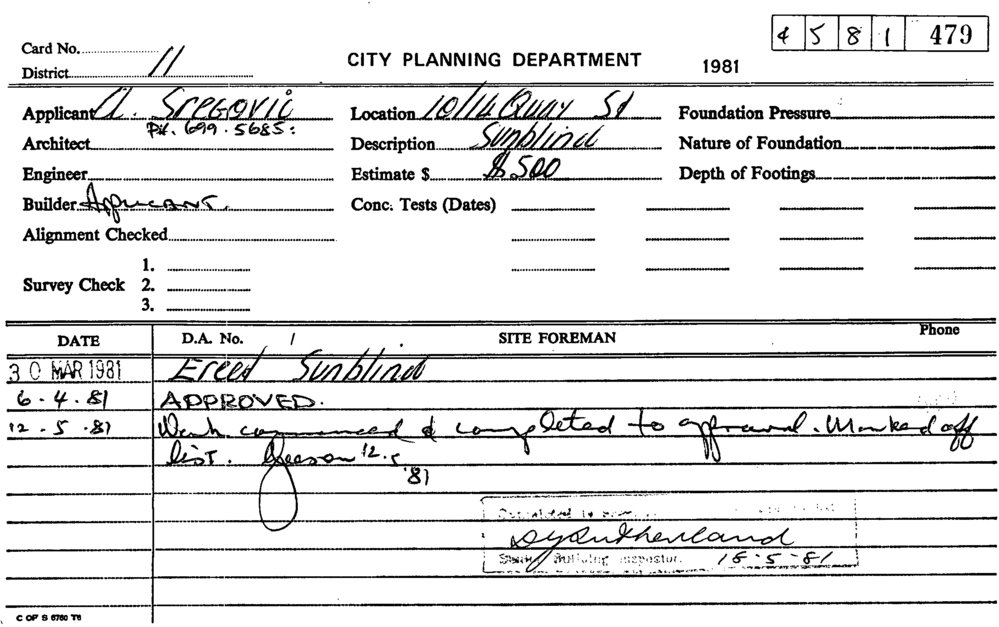 4 5 8 1 479
Card No.
District 11
CITY PLANNING DEPARTMENT 1981
Applicant A. SREGOVIC Location 10/14 Quay St Foundation Pressure
PH. 699.5685:
Architect Description Sunblind Nature of Foundation
Engineer Estimate $ $500 Depth of Footings
Builder APPLICANT. Conc. Tests (Dates)
Alignment Checked
1.
Survey Check 2.
3.
DATE D.A. No. / SITE FOREMAN Phone
30 MAR 1981 Erect Sunblind
6.4.81 APPROVED.
12.5.81 Work commenced & completed to approval. Marked off
list. 12.5
'81
Sutherland
Building Inspector. 18.5.81
C OF S 6760 T6